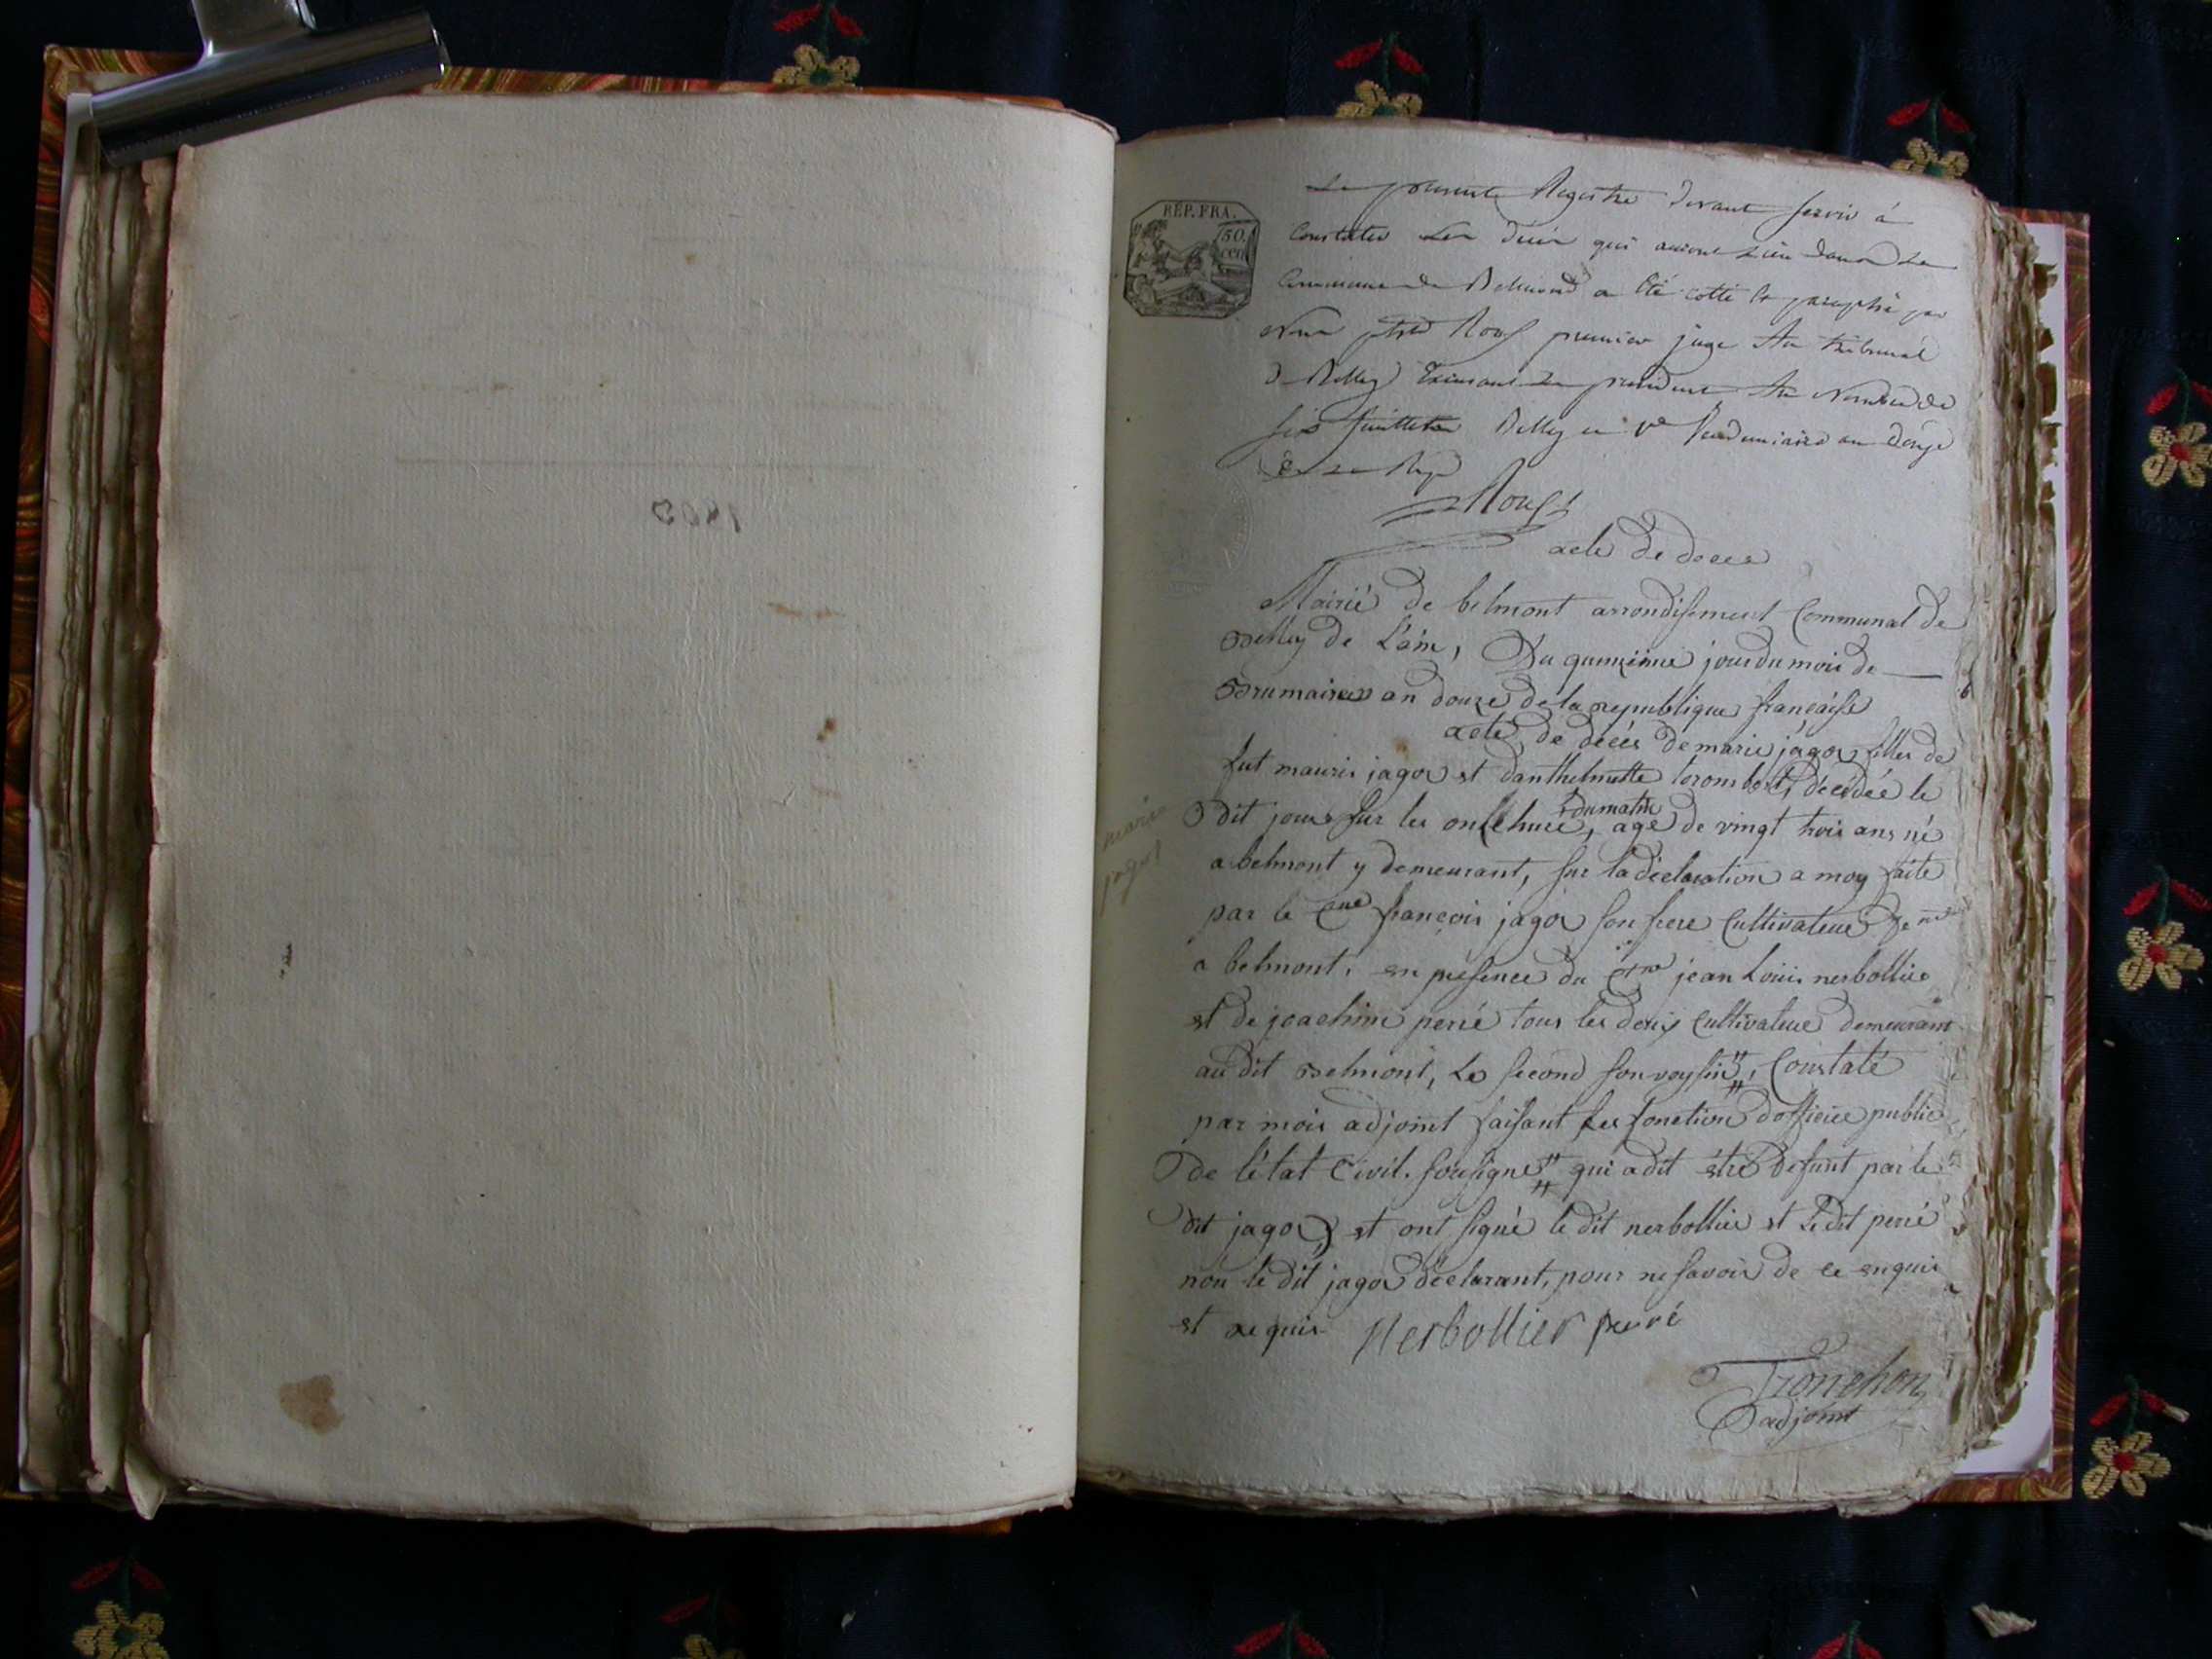 RÉP. FRA.
50.
cen.
Le présent Registre devant servir à
Constater Les décès qui auront Lieu dans La
Commune de Belmond a été cotté & paraphé par
Nous premier juge Au tribunal
de Belley Exerçant La president Au Nombre de
six feuillets Belley ce 1er Vendemiaire an douze
de La Rep
Rouss
acte de deces
Mairié de belmont arrondisement Communal de
Belley de L'ain, Du quinzième jour du mois de
Brumaires an douze de la republique française
acte de décès de marie jagot filles de
fut mauris jagot et danthelmette, décédée le
Dit jours sur les onze hure du matin, agé de vingt trois ans né
a belmont y demeurant, sur la déclaration a moy faite
marie
jagot
par le Cne françois jagot son frere Cultivateur
a belmont, en presence du jean Louis nerbollier
et de joachim perré tous les deux Cultivateur demeurant
au dit Belmont, Le second son voysin, Constaté
par mois adjoint faisant Les fonction d'officier public
De létat Civil. sousigné qui a dit être defunt par le
dit jagot, et ont signé le dit nerbollier et Ledit perré
non le dit jagot déclarant, pour ne savoir de ce enquis
et requis Nerbollier perré
Tronchon
adjoint